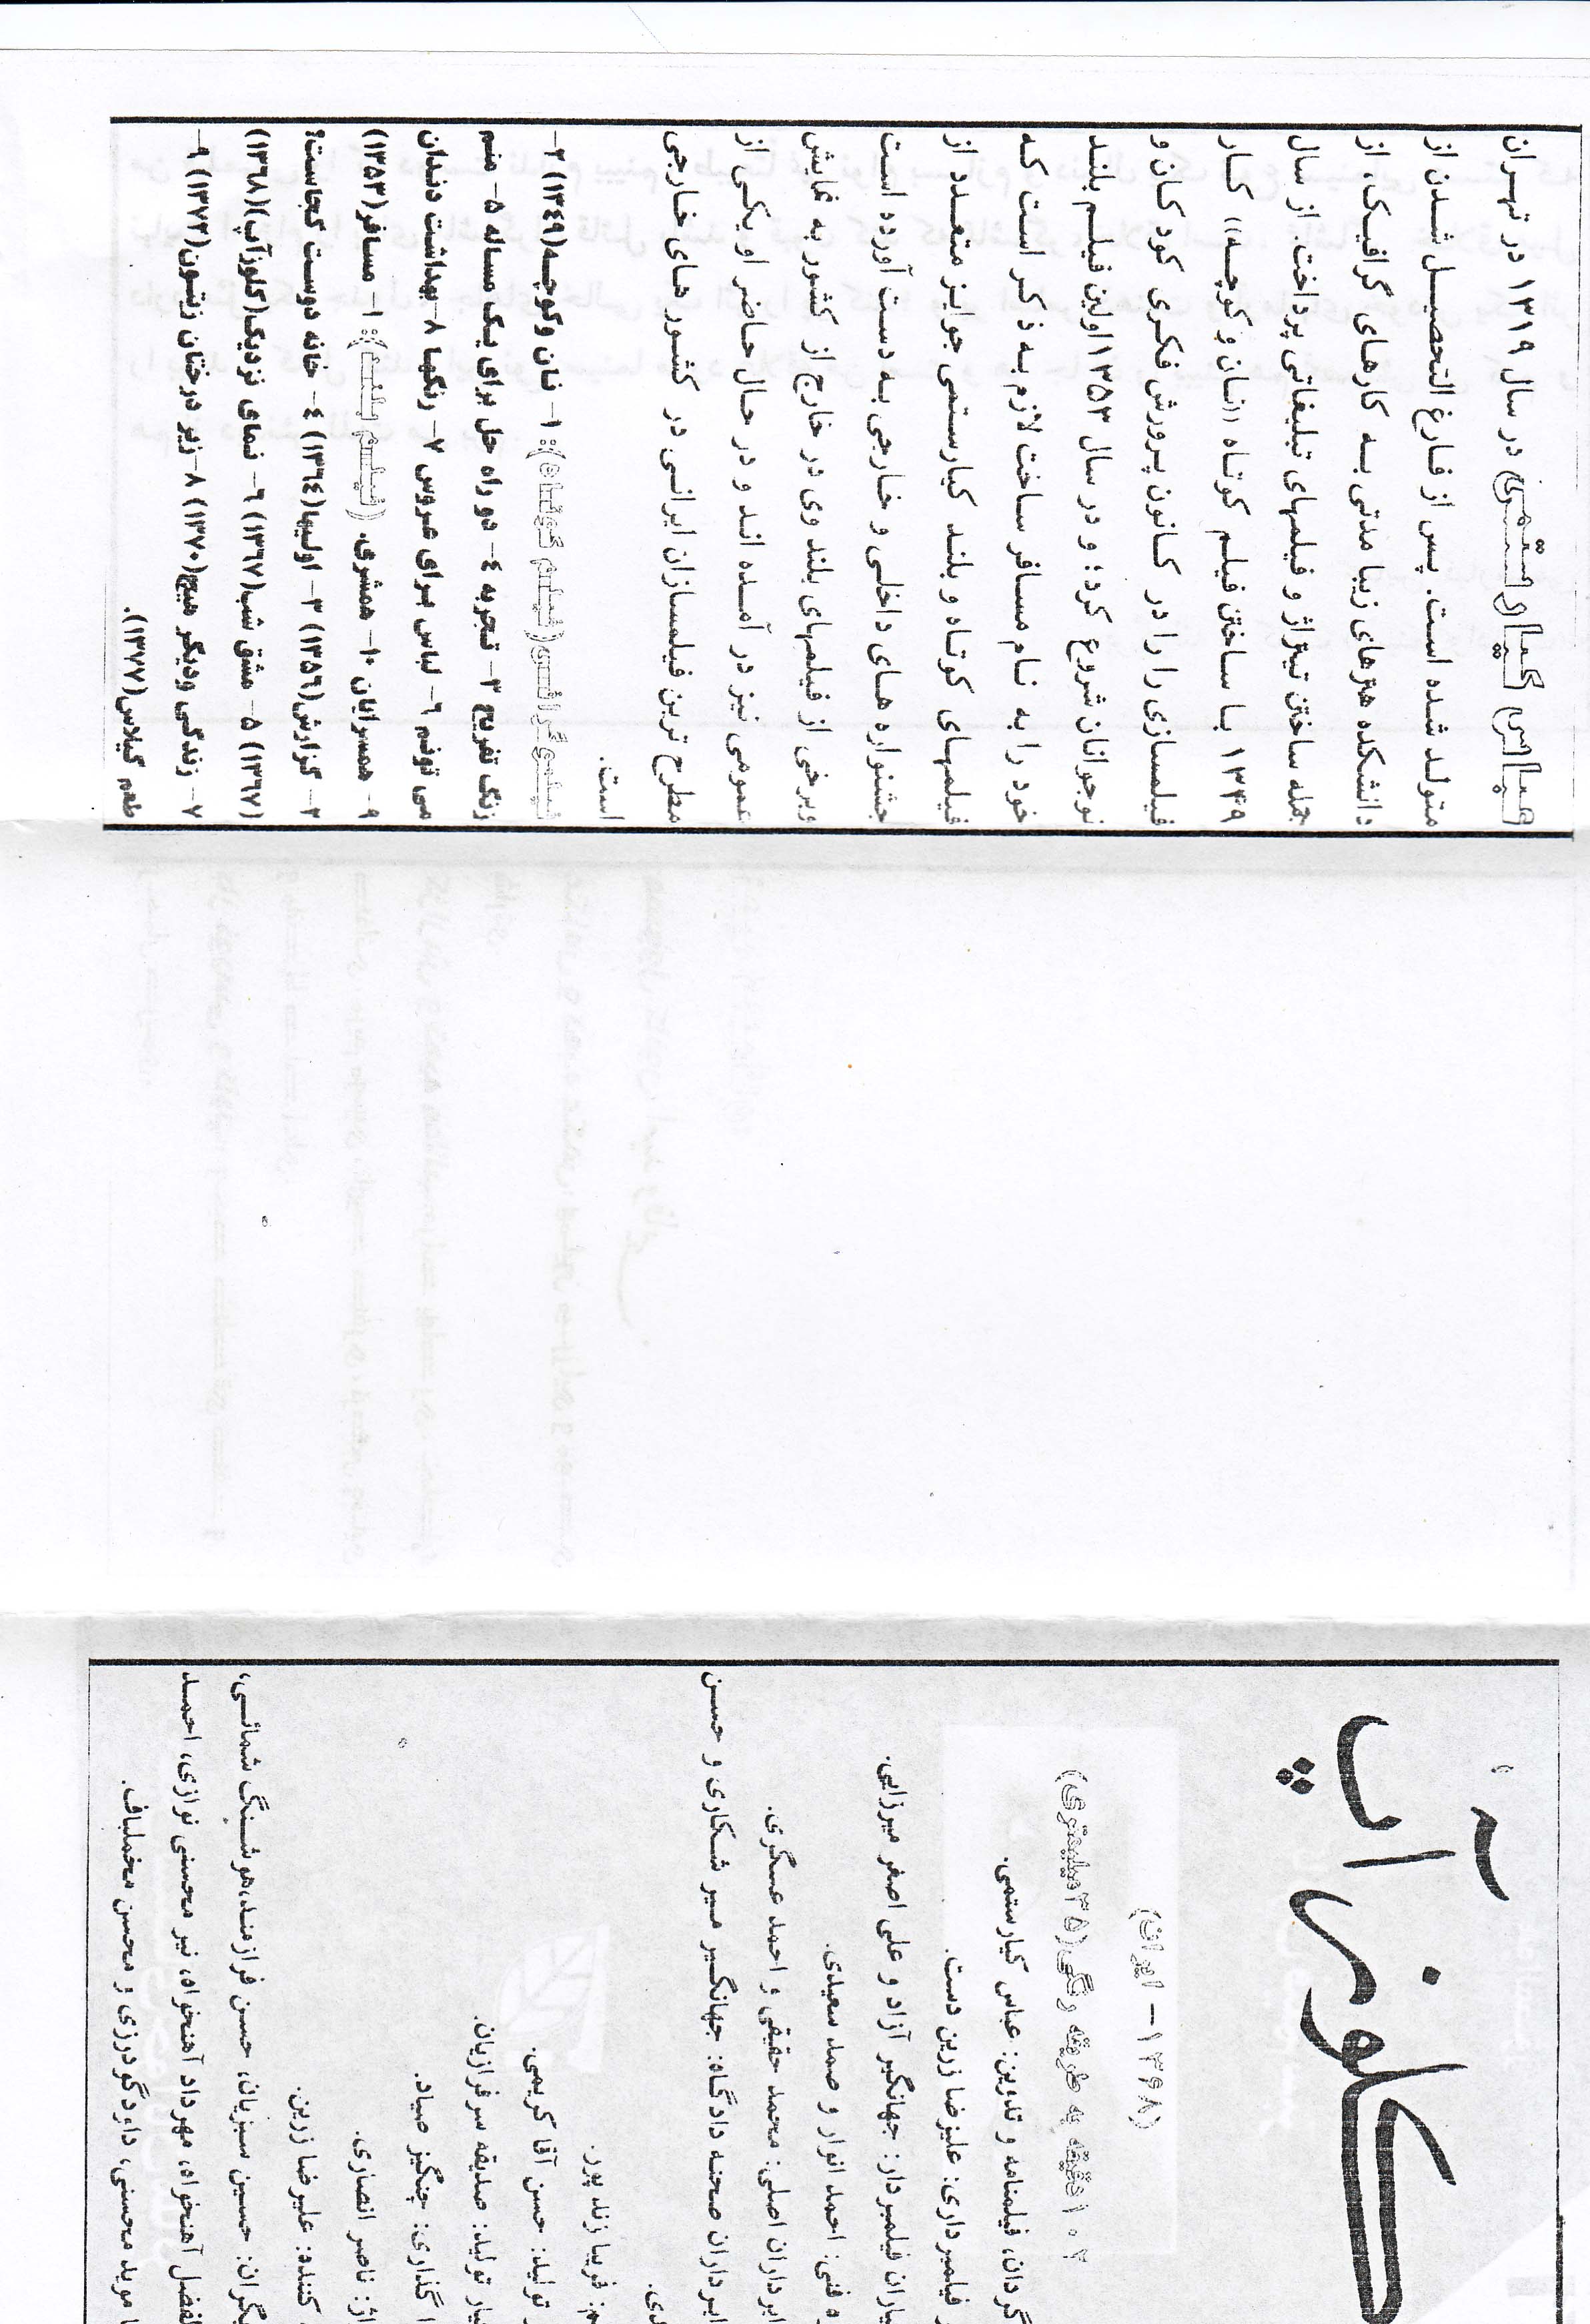 عباس کیارستمی در سال ۱۳۱۹ در تهران
متولد شده است. پس از فارغ التحصیل شدن از
دانشکده هنرهای زیبا مدتی به کارهای گرافیک، از
جمله ساختن تیتراژ و فیلمهای تبلیغاتی پرداخت. از سال
۱۳۴۹ با ساختن فیلم کوتاه ((نان و کوچه)) کار
فیلمسازی را را در کانون پرورش فکری کود کان و
نوجوانان شروع کرد؛ و در سال ۱۳۵۳ اولین فیلم بلند
خود را به نام مسافر ساخت لازم به ذکر است که
فیلمهای کوتاه و بلند کیارستمی جوایز متعدد از
جشنواره های داخلی و خارجی به دست آورده است
وبرخی از فیلمهای بلند وی در خارج از کشور به نمایش
عمومی نیز در آمده اند و در حال حاضر او یکی از
مطرح ترین فیلمسازان ایرانی در کشور های خارجی
است.
فیلموگرافی(فیلم کوتاه): ۱- نان وکوچه(۱۳۴۹) ۲-
زنگ تفریح ۳- تجربه ۴- دو راه حل برای یک مساله ۵- منم
می تونم ۶- لباس برای عروس ۷- رنگها ۸- بهداشت دندان
۹- همسرایان ۱۰- همشری. (فیلم بلند): ۱- مسافر(۱۳۵۳)
۲- گزارش(۱۳۵۶) ۳- اولیها(۱۳۶۴) ۴- خانه دوست کجاست؟
(۱۳۶۷) ۵- مشق شب(۱۳۶۷) ۶- نمای نزدیک(کلوزآپ)(۱۳۶۸)
۷- زندگی ودیگر هیچ(۱۳۷۰) ۸- زیر درختان زیتون(۱۳۷۲) ۹-
طعم گیلاس(۱۳۷۷).
کلوزآپ
(۱۳۶۸- ایران)
۱۰۲ دقیقه به طریقه رنگی(۳۵میلیمتری)
گردان، فیلمنامه و تدوین: عباس کیارستمی.
فیلمبرداری: علیرضا زرین دست.
یاران فیلمبردار: جهانگیر آزاد و علی اصغر میرزایی.
فنی: احمد انوار و صمد سعیدی.
ابرداران اصلی: محمد حقیقی و احمد عسگری.
ابرداران صحنه دادگاه: جهانگیر میر شکاری و حسن
دی.
فریبا زند پور.
تولید: حسن آقا کریمی.
یار تولید: صدیقه سرفرازیان.
ا گذاری: چنگیز صیاد.
اژ: ناصر انصاری.
کننده: علیرضا زرین.
یگران: حسین سبزیان، حسن فرازمند،هوشنگ شمائی،
لفضل آهنخواه، مهرداد آهنخواه، نیر محسنی نوازی، احمد
ا موید محسنی، داود گودرزی و محسن مخملباف.